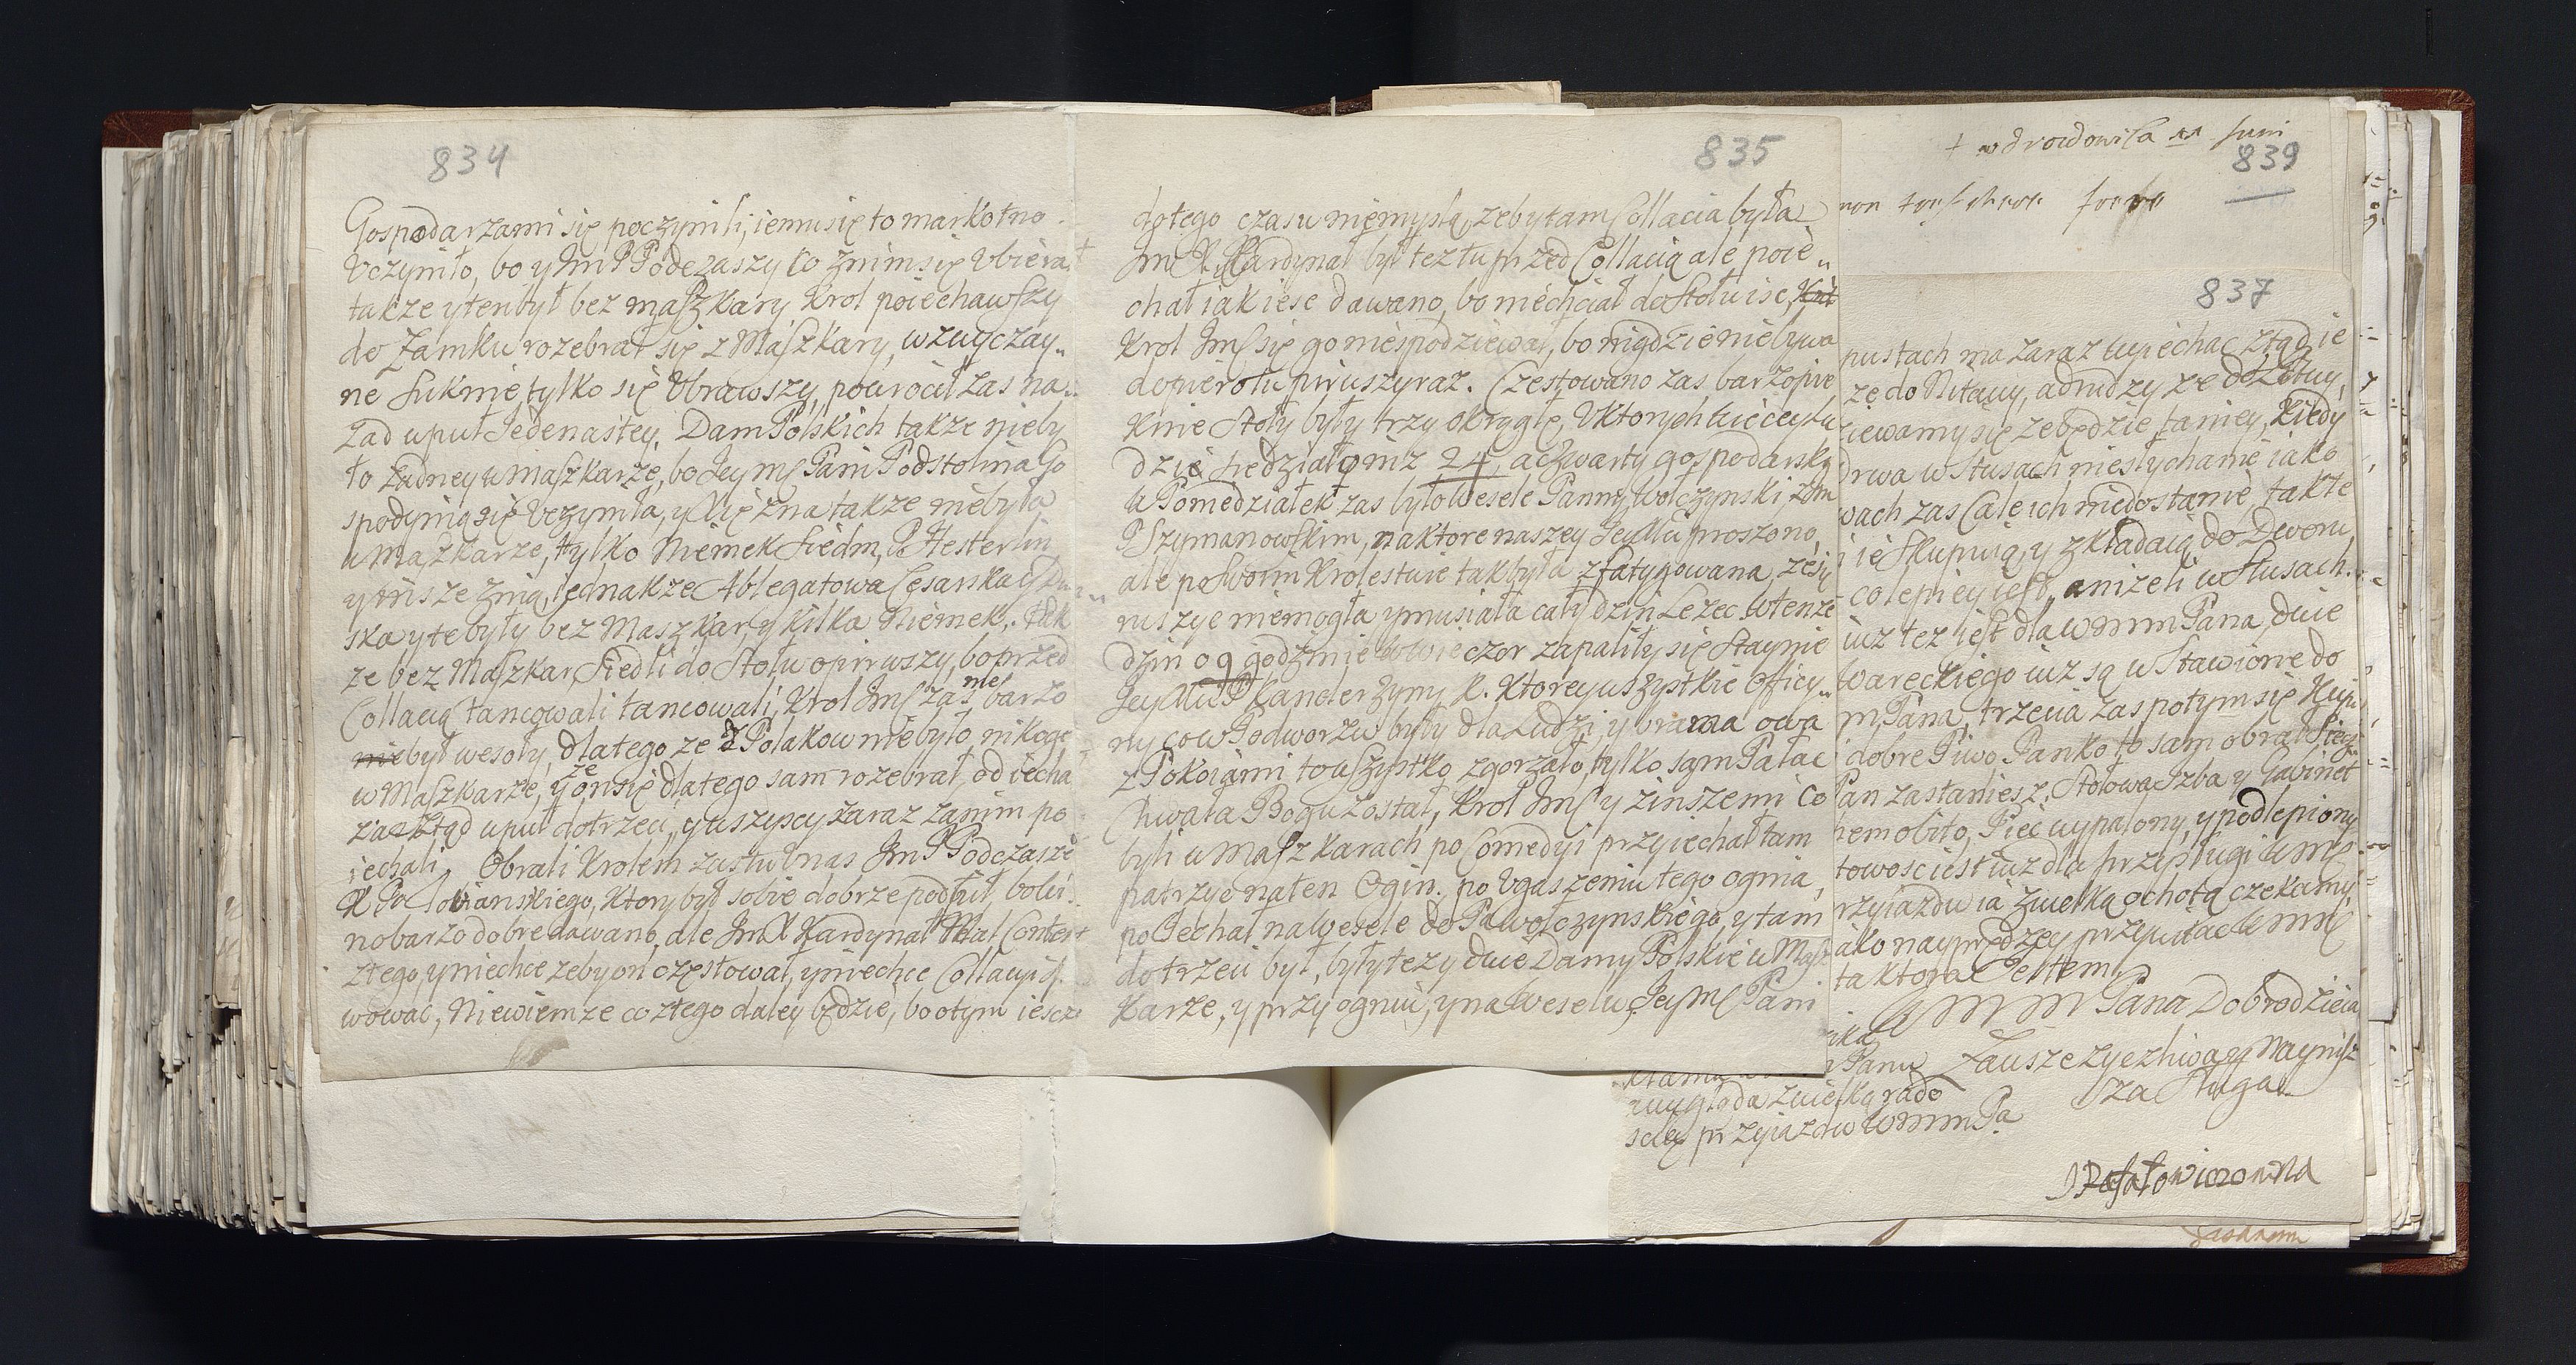 834
Gospodarzami się poczynili, iemu się to markotno
Uczyniło, bo y Jm P Podczaszy co znim się Ubiera
takze y ten był bez maszkary, Krol poiechawszy
do Zamku rozebrał się z Maszkary, w zwyczay„
ne Suknie tylko się Ubrawszy, powrocił zas na„
zad w puł Jedenastey. Dam Polskich takze nieby
ło zadney w Maszkarze, bo Jey Mć Pani Podstolina Go
spodynią się Uczyniła, y Xięzna takze niebyła
w Maszkarze, tylko Niemek Siedm, P Hesterlin
y insze znią, Jednakze Ablegatowa Cesarska y
ska y te były bez Maszkar, y kilka Niemek. tak
ze bez Maszkar, Siedli do Stołu o pirwszy, bo przed
Collacią tancowali tancowali, Krol Jmć zas nie barzo
był wesoły, dlatego ze z Polakow niebyło nikogo
w Maszkarze, y ze on się dlatego sam rozebrał, odiecha
zas ztąd w puł do trzeci, y wszyscy zaraz zanim po
iechali. Obrali Krolem zas tu Unas Jm P Podczasze
który był sobie dobrze podpił, bo wi
no barzo dobre dawano, ale Jm X Kardynał Mal Content
ztego, y niechce zeby on częstował, y niechce Collacyi
wować, Niewiem ze co ztego daley będzie, bo o tym ieszcze
835
do tego czasu niemyslą, zeby tam Collacia była
Jm X. Kardynał był tez tu przed Collacią ale poie„
chał iak iesc dawano, bo niechciał do Stołu isc,
Krol Jmć się go niespodziewał, bo nigdzie niebywa
dopiero tu pirwszy raz. Czestowano zas barzo pie
knie Stoły były trzy okrągłe, Uktorych wiecey lu
dzi siedziało niz 24, a czwarty gospodarsky
w Poniedziałek zas było Wesele Panny Wołczynski z Jm
P Szymanowskim, na ktore naszey Jey Mci proszono,
ale po Swoim Krolestwie tak była zfatygowana, ze się
ruszyc niemogła y musiała cały dzin Lezec. Wtenze
dzin o 9 godzinie wieczor zapaliły się Staynie
Jey Mci P Kanclerzyny K. Ktorey wszystkie Officy„
ny co w Podworzu były dla Ludzi, y brama owa
z Pokoiami to wszystko zgorzało, tylko sam Pałac
Chwała Bogu został, Krol Jmć y zinszemi co
byli w Maszkarach po Comedyi przyiechał tam
patrzyc na ten Ogin. po Ugaszeniu tego ognia,
poiechał na Wesele do Pa Wołczynskiego, y tam
do trzeci był, były tez y dwie Damy Polskie w Masz
Karze, y przy ogniu, y na Weselu, Jey Mć Pani
839
837
pustach ma zaraz wyiechac ztąd ie
ze do Nitawy, a drudzy ze do Litwy,
ziewamy się ze będzie taniey, kiedy
drwa w Stusach niesłychanie iako
wach zas Cale ich niedostanie, takze
ie Skupuią, y zkładaią do Dworu,
co lepiey iest, anizeli w Stusach.
iuz tez iest dla WMMM Pana, dwie
Wareckiego iuz są w Stawione do
m Pana, trzecia zas potym się Kupi
dobre Piwo Panko to sam obrał
Pan zastaniesz. Stołowa Izba, y Gabinet
em obito, Piec wypalony, y podlepiony
towosc iest iuz dla przysługi
rzyiazdu ia zwielką ochotą czekamy
iako nayprędzey przywitac
ta ktora Jestem
WM M Pana Dobrodzieia
Zawsze zyczliwą y Naynisz
sza Sługa
Panu
wygląda zwielką rado
scią przyiazdu WMMM Pa